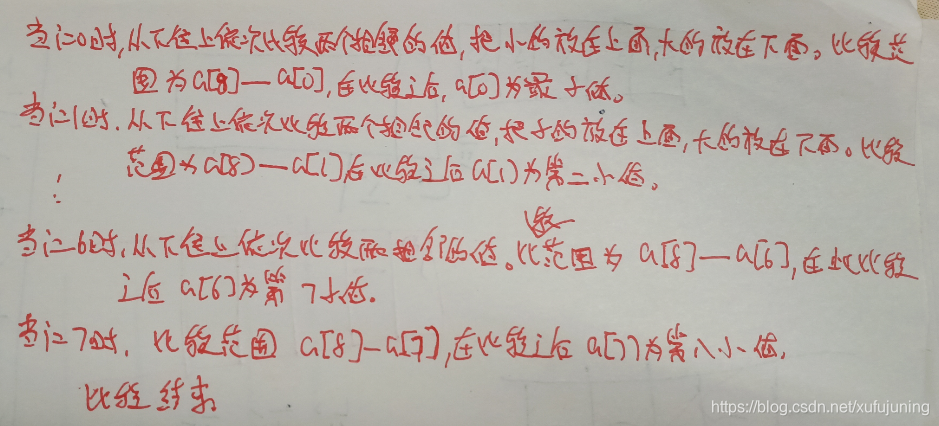 当i=0时,从下往上依次比较两个相邻的值,把小的放在上面,大的放在下面。比较范
围为a[8]—a[0],在比较之后,a[0]为最小值。
当i=1时.从下往上依次比较两个相邻的值,把小的放在上面,大的放在下面。比较
范围为a[8]—a[1]在比较之后a[1]为第二小值。
⋮
较
当i=6时,从下往上依次比较两相邻的值。比范围为a[8]—a[6],在此比较
之后a[6]为第7小值.
当i=7时.比较范围a[8]—a[7],在比较之后a[7]为第八小值.
比较结束
https://blog.csdn.net/xufujuning